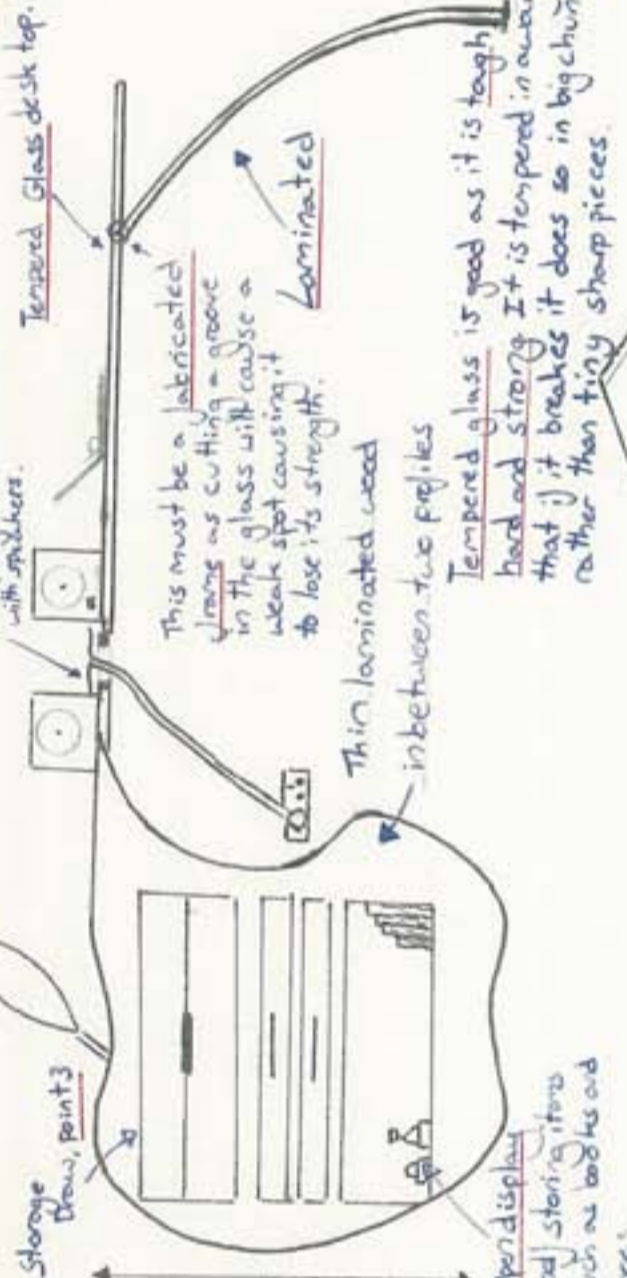 Tempered Glass desk top.
This must be a fabricated
frame as cutting a groove
in the glass will cause a
weak spot causing it
to lose its strength.
Laminated
Thin laminated wood
inbetween two profiles
Tempered glass is good as it is tough
hard and strong It is tempered in a
that if it breakes it does so in big
rather than tiny sharp pieces.
Storage
Draw, point 3
display
storing items
as books and